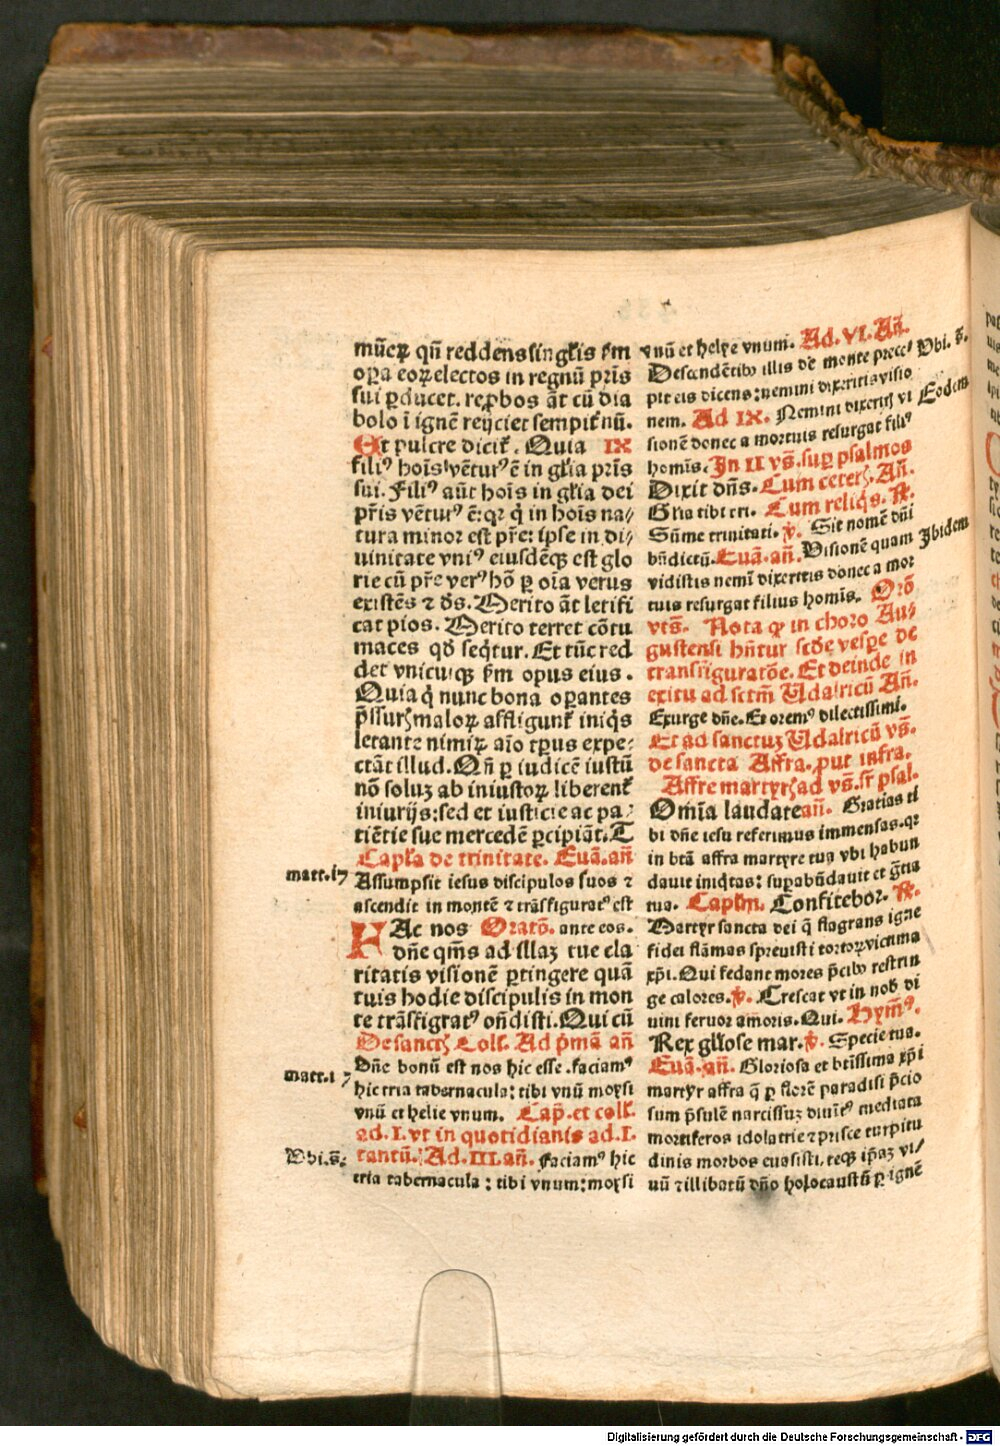 mūeꝝ qñ reddens singĺis ẜm
oꝑa eoꝝ electos in regnū pr̄is
sui ꝑducet. reꝓbos āt cū dia
bolo ī ignē reijciet sempitnū.
Et pulcre dicit̄. Quia IX
filiꝰ hoīs vēturꝰ ē in gĺia pr̄is
sui. Filiꝰ aūt hoīs in gĺia dei
pr̄is vēturꝰ ē: qꝛ q̇ in hoīs na/
tura minor est pr̄e: ipse in di/
uinitate vniꝰ eiusdēqꝫ est glo
rie cū pr̄e verꝰ hō ⁊ oīa verus
existēs ⁊ d̄s. Merito āt letifi
cat pios. Merito terret cōtu
maces qđ seqt̄ur. Et tūc red
det vnicuiqꝫ ẜm opus eius.
Quia q̇ nunc bona oꝑantes
maloꝝ affligunt̄ iniq̇s
letante nimiꝝ aīo tꝑus expe/
ctāt illud. Qñ ꝑ iudicē iustū
nō soluꝫ ab iniustoꝝ liberent̄
iniurijs: sed et iusticie ac pa/
tiētie sue mercedē ꝑcipiāt. T
Capĺa de trinitate. Euā. añ
matt. 17 Assumpsit iesus discipulos suos ⁊
ascendit in montē ⁊ trāsfiguratꝰ est
HAc nos Oratō. ante eos.
dñe qm̄s ad illaꝫ tue cla
ritatis visionē ꝑtingere quā
tuis hodie discipulis in mon
te trāsfigratꝰ oñdisti. Qui cū
De sanctꝭ Coll. Ad p̄mā añ
matt. 17 Dñe bonū est nos hic esse. faciamꝰ
hic tria tabernacula: tibi vnū moysi
vnū et helie vnum. Cap̄. et coll.
ad. I. vt in quotidianis ad. I.
Vbi. s̄. tantū. Ad. III. añ. Faciamꝰ hic
tria tabernacula: tibi vnum: moysi
vnū et helye vnum. Ad. VI. Añ.
Descendētibꝰ illis de monte preceꝰ Vbi. s̄.
pit eis dicens: nemini dixeritis visio
nem. Ad IX. Nemini dixeritꝭ vi Eodem
sionē donec a mortuis resurgat filiꝰ
homīs. In II vs̄. suꝑ psalmos
Dixit dn̄s. Cum ceterꝭ. Añ.
Gĺia tibi tri. Cum reliq̇s. ℟.
Sūme trinitati. ℣. Sit nomē dñi
bn̄dictū. Euā. añ. Visionē quam Ibidem
vidistis nemī dixeritis donec a mor
tuis resurgat filius homīs. Orō
vts̄. Nota qꝙ in choro Au/
gustensi hñtur scđe vesꝑe de
transfiguratōe. Et deinde in
exitu ad sctm̄ Udalricū Añ.
Exurge dñe. Et oremꝰ dilectissimi.
Et ad sanctuꝫ Udalricū vs̄.
de sancta Affra. prout infra.
Affre martyrꝭ ad vs̄. sr̄ psal.
Omīa laudate añ. Gratias ti
bi dñe iesu referimus immensas. qꝛ
in btā affra martyre tua vbi habun
dauit iniq̇tas: suꝑabūdauit et gr̄tia
tua. Capĺm. Confitebor. ℟.
Martyr sancta dei q̄ flagrans igne
fidei flāmas spreuisti tortoꝝ victima
xp̄i. Qui fedant mores p̄cibꝰ restrin
ge calores. ℣. Crescat vt in nob̄ di
uini feruor amoris. Qui. Hym̄ꝰ.
Rex gĺiose mar. ℣. Specie tua.
Euā. añ. Gloriosa et btīssima xp̄i
martyr affra q̄ ꝑ florē paradisi p̄cio
sum p̄sulē narcissuꝫ diuītꝰ mediata
mortiferos idolatrie ⁊ prisce turpitu
dinis morbos euasisti, teqꝫ ip̄aꝫ vi/
uū ⁊ illibatū dño holocaustū ꝑ ignē
Digitalisierung gefördert durch die Deutsche Forschungsgemeinschaft - DFG